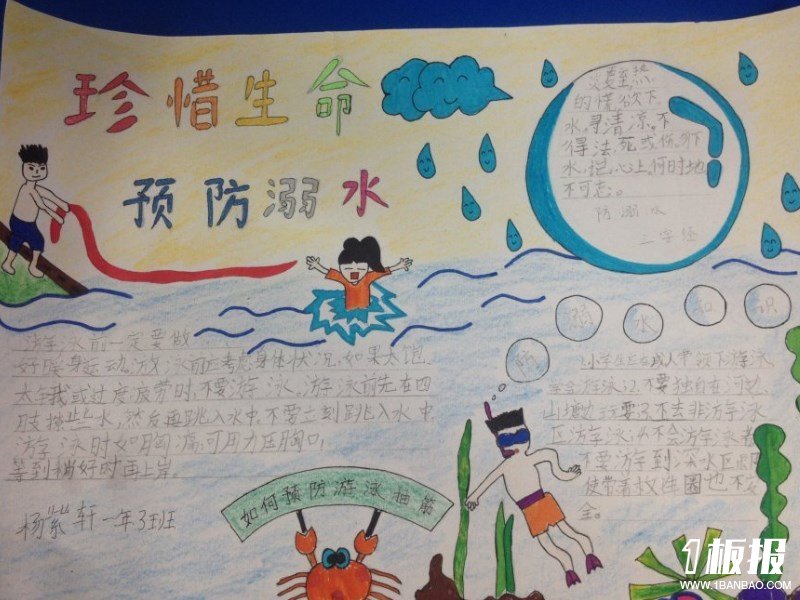 珍惜生命
预防溺水
夏至,热
的慌,欲下
水,寻清凉。不
得法,死或伤。
水,记心上,何时地
不可忘。
防溺水
三字经
防溺水知识
游泳前一定要做
好暖身运动。
游泳前应考虑身体状况,如果太饱
太饿或过度疲劳时,不要游泳。游泳前先在四
肢撩些水,然后再跳入水中,不要立刻跳入水中
游泳时如胸痛,可用力压胸口,
等到稍好时再上岸。
1.小学生应在成人带领下游泳
不要独自在河边、
山塘边
不去非游泳
区游泳;
不会游泳者
不要游到深水区,即
使带着救生圈也不安
全。
如何预防游泳抽筋
轩一年3班
1板报
WWW.1BANBAO.COM